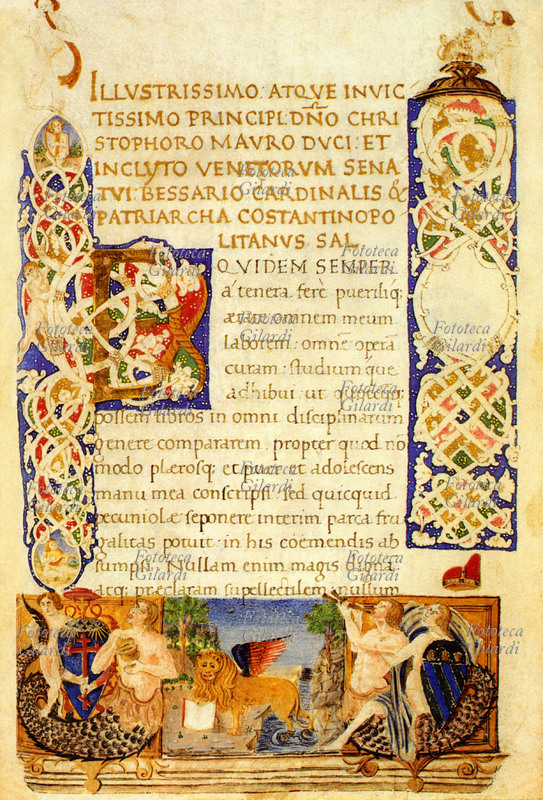 ILLVSTRISSIMO: ATQVE INVIC
TISSIMO PRINCIPI. DÑO CHRI
STOPHORO MAVRO DVCI: ET
INCLYTO VENETORVM SENA
TVI: BESSARIO CARDINALIS &
PATRIARCHA COSTANTINOPO
LITANVS. SAL.
EQVIDEM SEMPER:
a' tenera fere puerilíq;
ætate omnem meum
laborem: omnē operā
curam: studium que
adhibui: ut
possem libros in omni disciplinarum
genere comparare, propter quod nō
modo plærosq; et puer et adolescens
manu mea conscripsi: sed quicquid
pecuniolæ seponere interim parca fru
galitas potuit: in his coemendis ab
sumpsi. Nullam enim magis dignā
atq; præclaram supellectilem nullum
Fototeca
Gilardi
Fototeca
Gilardi
Fototeca
Gilardi
Fototeca
Gilardi
Fototeca
Gilardi
Fototeca
Gilardi
Fototeca
Gilardi
Fototeca
Gilardi
Fototeca
Gilardi
Fototeca
Gilardi
Fototeca
Gilardi
Fototeca
Gilardi
Fototeca
Gilardi
Fototeca
Gilardi
Fototeca
Gilardi
Fototeca
Gilardi
Fototeca
Gilardi
Fototeca
Gilardi